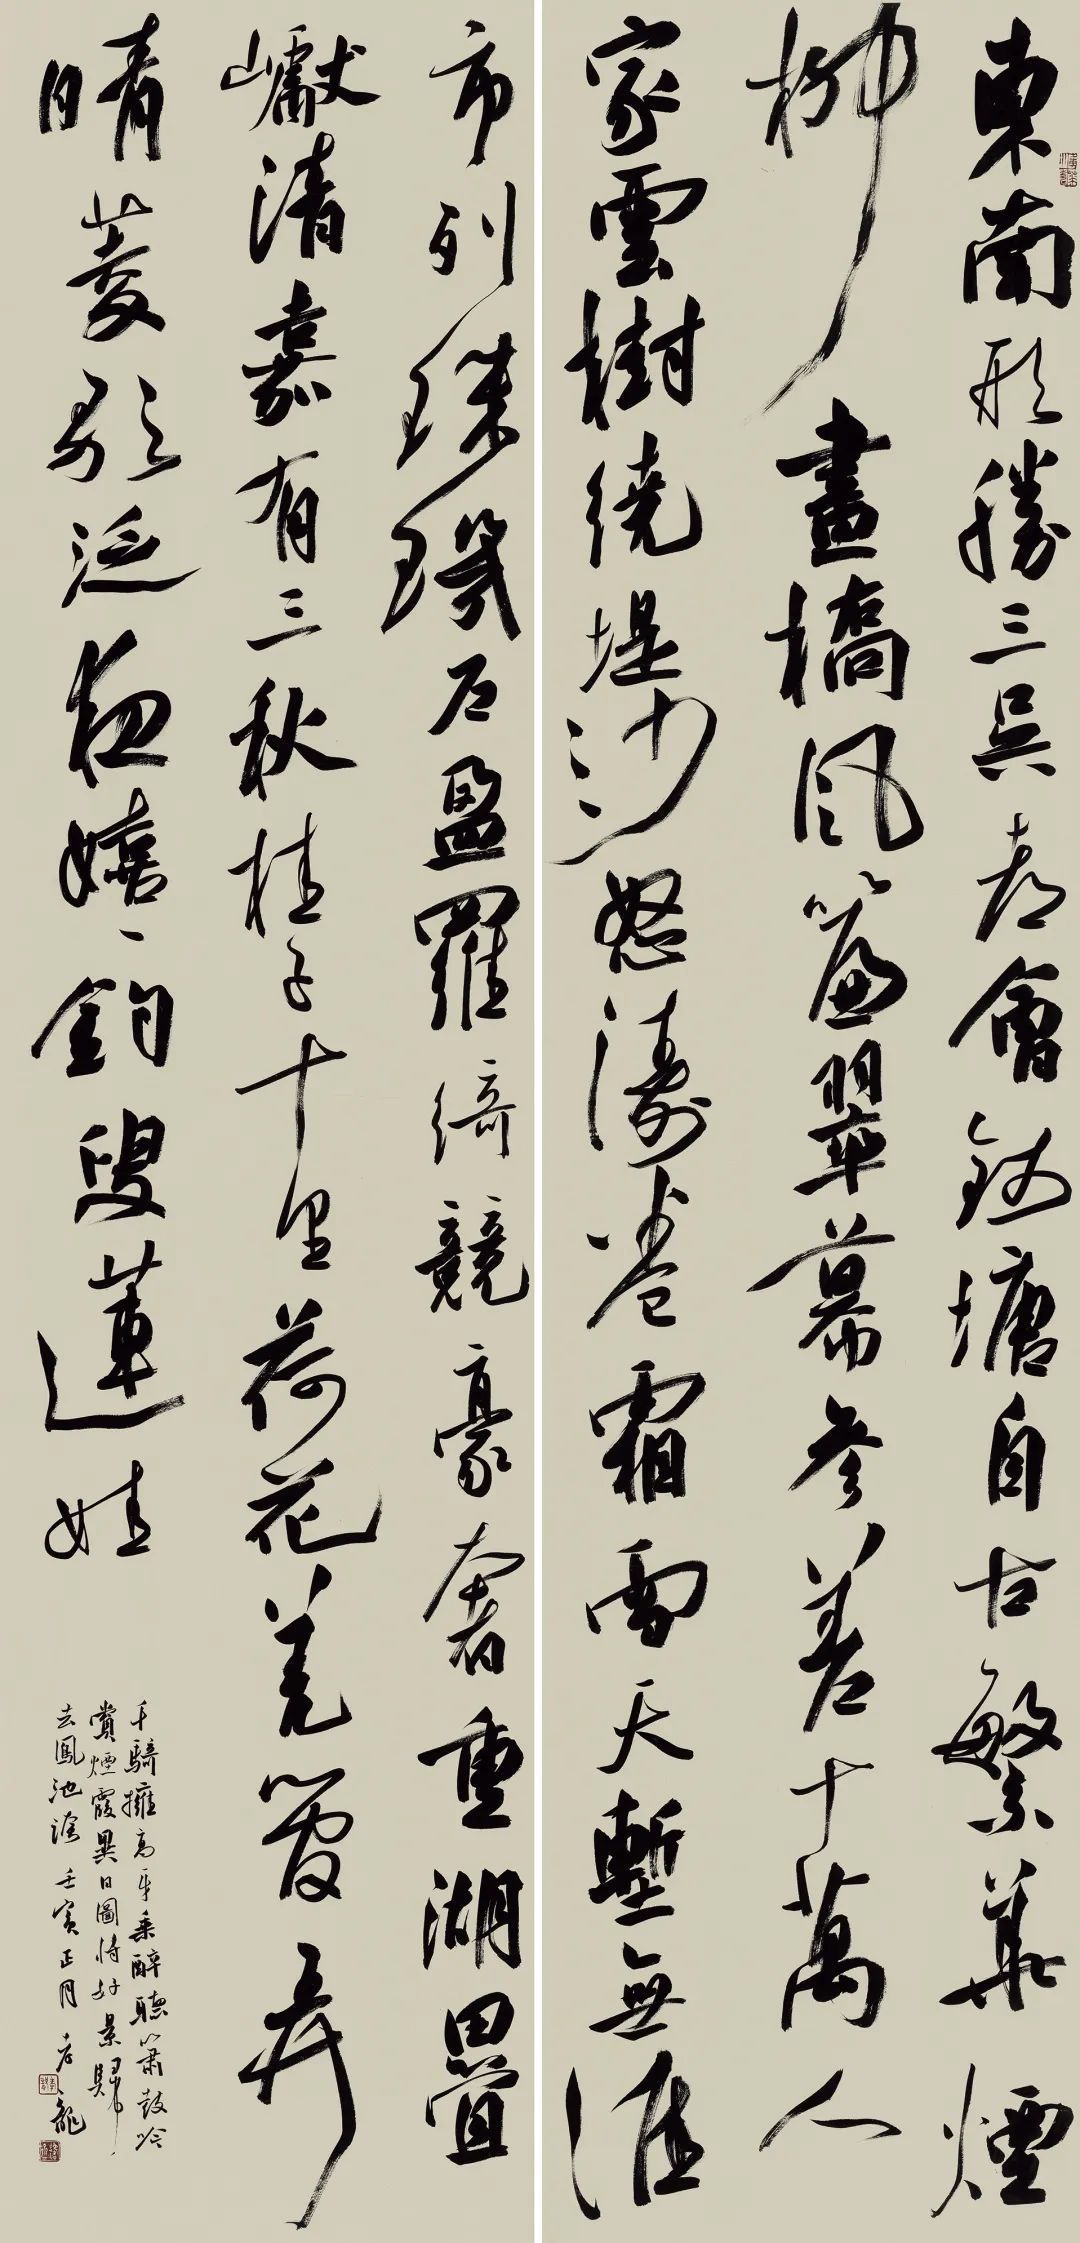 東南形勝三吳都會錢塘自古繁華煙
柳畫橋風簾翠幕參差十萬人
家雲樹繞堤沙怒濤卷霜雪天塹無涯
市列珠璣戶盈羅綺競豪奢重湖疊
巘清嘉有三秋桂子十里荷花羌管弄
晴菱歌泛夜嬉々釣叟蓮娃
千騎擁高牙乘醉聽簫鼓吟
賞煙霞異日圖將好景歸
去鳳池誇 壬寅正月 龍